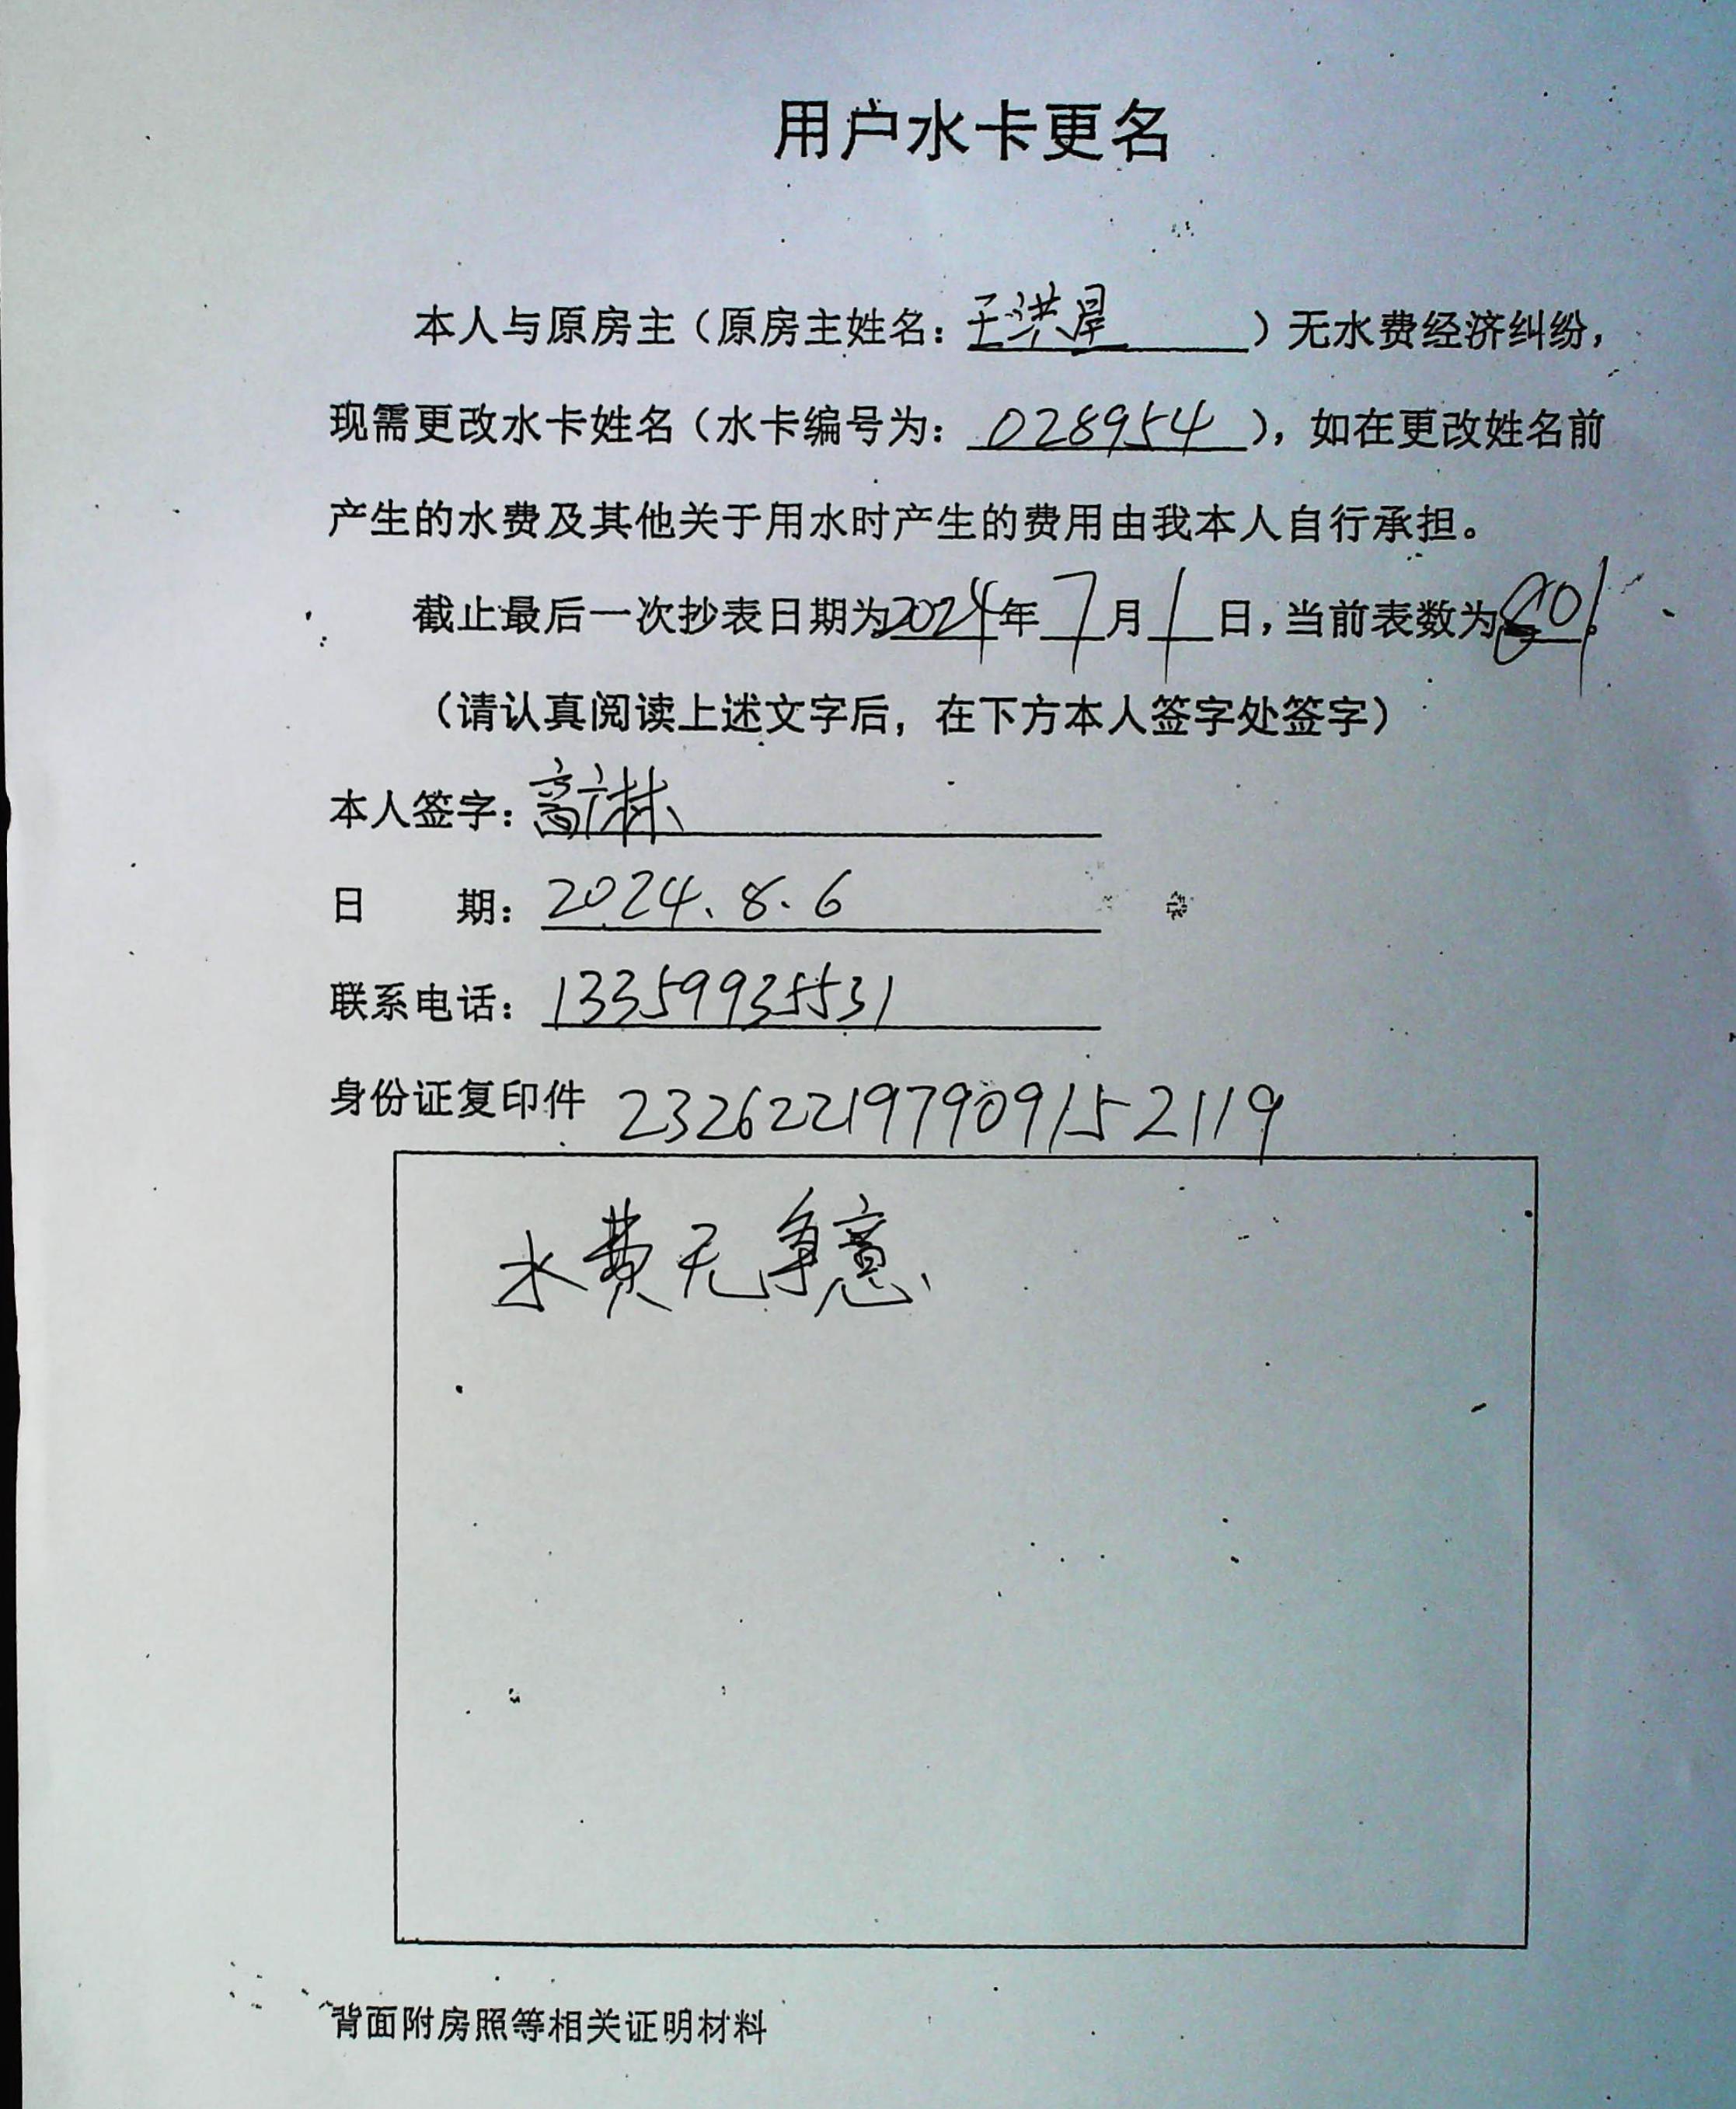 用户水卡更名
本人与原房主（原房主姓名：王洪）无水费经济纠纷，
现需更改水卡姓名（水卡编号为：028954），如在更改姓名前
产生的水费及其他关于用水时产生的费用由我本人自行承担。
截止最后一次抄表日期为2024年7月1日，当前表数为801。
（请认真阅读上述文字后，在下方本人签字处签字）
本人签字：高广林
日 期：2024.8.6
联系电话：13359935531
身份证复印件 232622197909152119
水费无争意、
背面附房照等相关证明材料